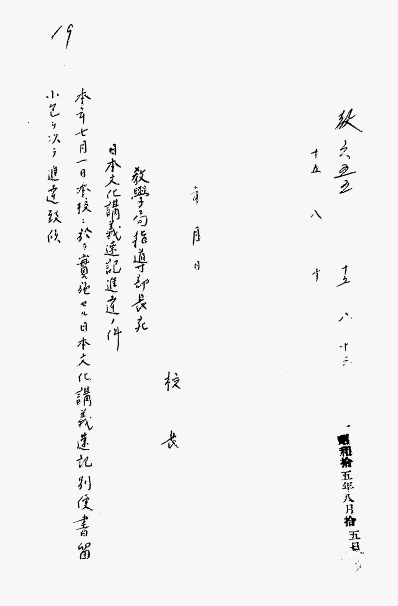 19
教六五五
十五 八 十
十五 八 十三
昭和拾五年八月拾五日
年 月 日
校 長
教學局指導部長宛
日本文化講義速記進達ノ件
本年七月一日本校ニ於テ實施セル日本文化講義速記別便書留
小包ヲ以テ進達致候